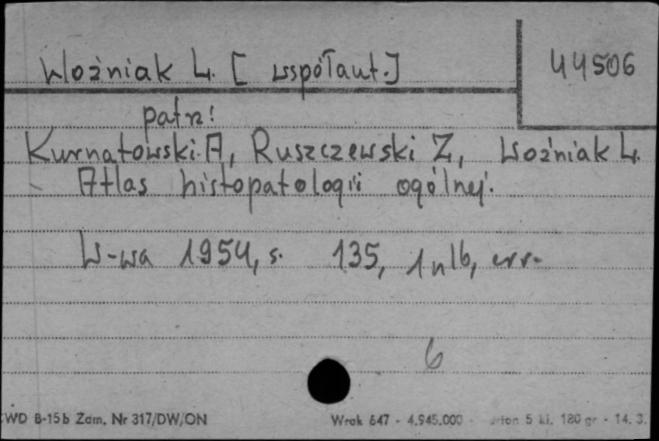 Woźniak Ł. [współaut.]
44506
patrz:
Kurnatowski A, Ruszczewski Z, Woźniak Ł.
Atlas histopatologii ogólnej.
W-wa 1954, s. 135, 1 nlb, err.
6
CWD B-15b Zam. Nr 317/DW/ON
Wrok 647 - 4.945.000 - 5 kl. 180 gr - 14.3.